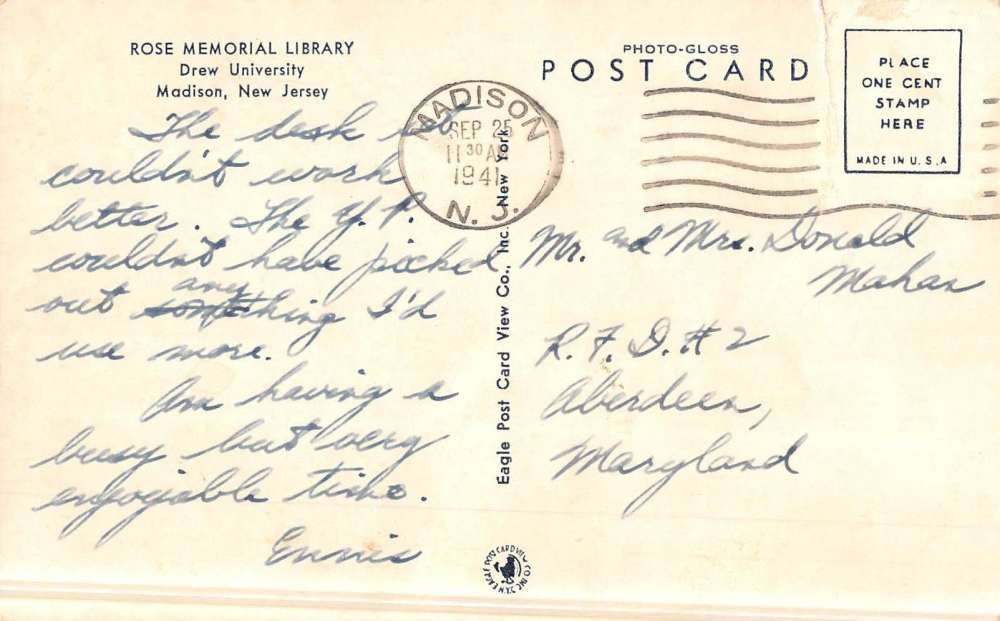 ROSE MEMORIAL LIBRARY
Drew University
Madison, New Jersey
The desk set
couldn't work
better. The Y.P.
couldn't have picked
out any
something I'd
use more.
Am having a
busy but very
enjoyable time.
Ennis
MADISON
SEP 25
11 30 AM
1941
N. J.
Eagle Post Card View Co., Inc. New York.
PHOTO-GLOSS
POST CARD
PLACE
ONE CENT
STAMP
HERE
MADE IN U.S.A
Mr. and Mrs. Donald
Mahan
R.F.D. # 2
Aberdeen,
Maryland
EAGLE POST CARD VIEW CO. INC. N.Y.